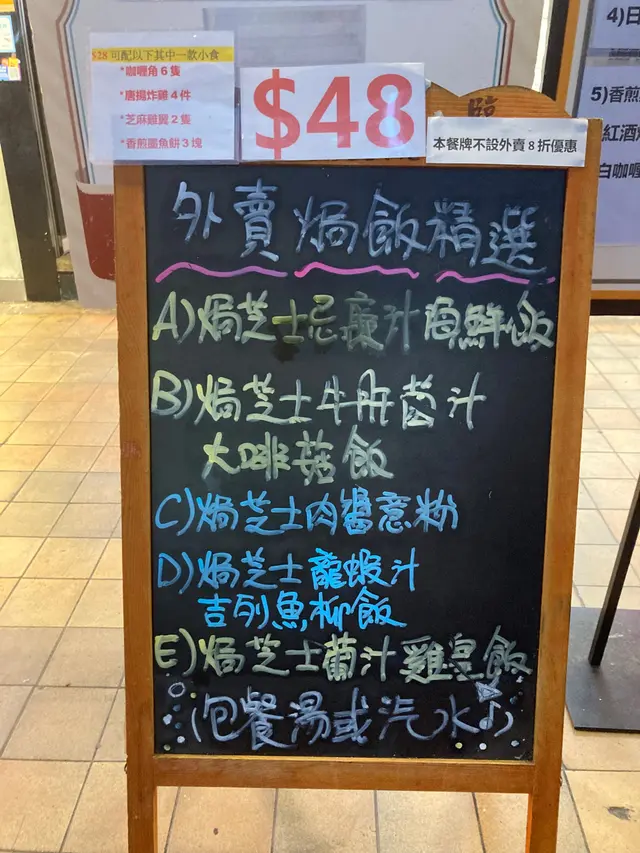 $28 可配以下其中一款小食
*咖喱角 6 隻
*唐揚炸雞 4 件
*芝麻雞翼 2 隻
*香煎墨魚餅 3 塊
$48
本餐牌不設外賣 8 折優惠
外賣焗飯精選
A)焗芝士忌廉汁海鮮飯
B)焗芝士牛月𠝹汁
大啡菇飯
C)焗芝士肉醬意粉
D)焗芝士龍蝦汁
吉列魚柳飯
E)焗芝士葡汁雞皇飯
(包餐湯或汽水)
4)日
5)香煎
紅酒
白咖喱